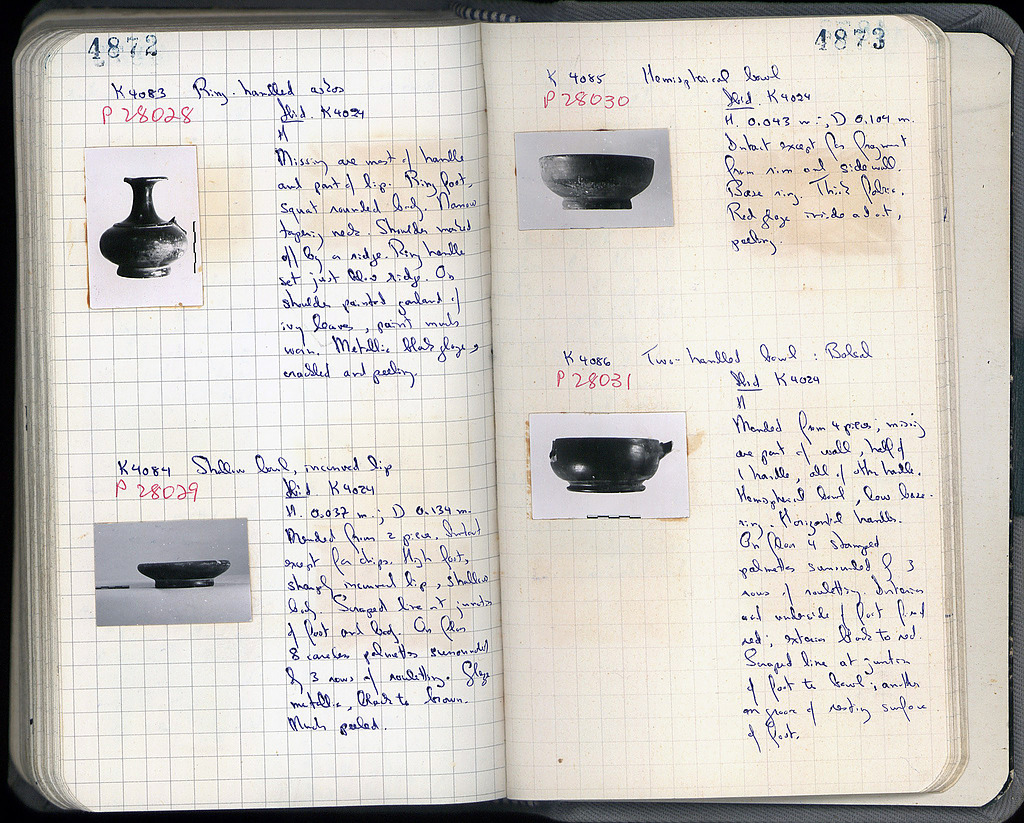 4872
K 4083 Ring-handled askos
P 28028
Ibid. K 4024
H
Missing are most of handle
and part of lip. Ring foot,
squat rounded body. Narrow
tapering neck. Shoulder marked
off by a ridge. Ring handle
set just below ridge. On
shoulder painted garland of
ivy leaves, paint much
worn. Metallic black glaze,
crackled and peeling.
K 4084 Shallow bowl, incurved lip
P 28029
Ibid K 4024
H. 0.037 m.; D 0.134 m.
Mended from 2 pieces. Intact
except for chips. High foot,
sharply incurved lip, shallow
body. Scraped line at junction
of foot and body. On floor
8 careless palmettes surrounded
by 3 rows of rouletting. Glaze
metallic, black to brown.
Much peeled.
4873
K 4085 Hemispherical bowl
P 28030
Ibid. K 4024
H. 0.043 m.; D 0.104 m.
Intact except for fragment
from rim and side wall.
Base ring. Thick fabric.
Red glaze inside and out,
peeling.
K 4086 Two-handled bowl: Bolsal
P 28031
Ibid K 4024
H
Mended from 4 pieces; missing
are part of wall, half of
1 handle, all of other handle.
Hemispherical bowl, low base-
ring. Horizontal handles.
On floor 4 stamped
palmettes surrounded by 3
rows of rouletting. Interior
and underside of foot fired
red; exterior black to red.
Scraped line at junction
of foot to bowl; another
on groove of resting surface
of foot.